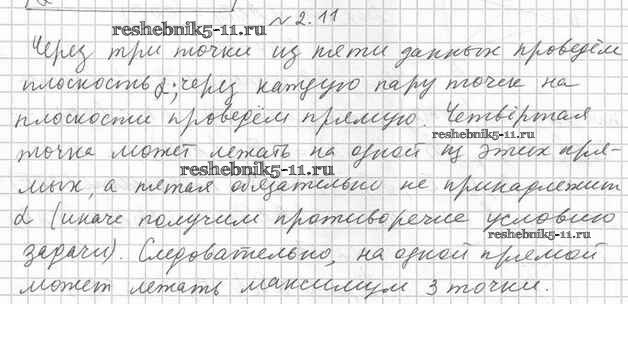 № 2.11
reshebnik5-11.ru
Через три точки из пяти данных проведём
плоскость α; через каждую пару точек на
плоскости проведём прямую. Четвёртая
reshebnik5-11.ru
точка может лежать на одной из этих пря-
reshebnik5-11.ru
мых, а пятая обязательно не принадлежит
α (иначе получим противоречие условию
reshebnik5-11.ru
задачи). Следовательно, на одной прямой
может лежать максимум 3 точки.